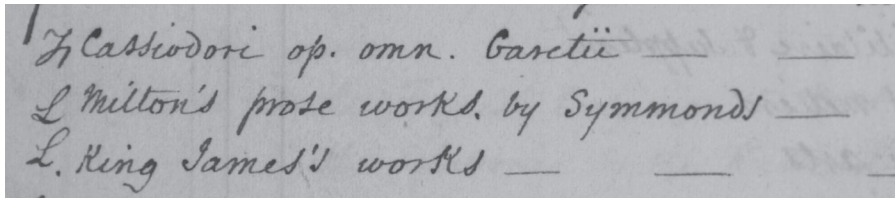 Cassiodori op. omn. Garetii
L Milton's prose works. by Symmonds
L. King James's works